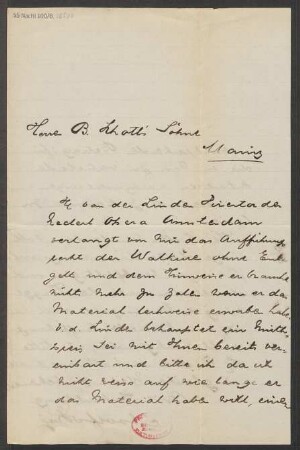 Herrn B. Schott's Söhne
Mainz
H. van der Linden Director der
Nederl. Opera Amsterdam
verlangt von mir das Aufführungs
recht der Walküre ohne Ent
gelt und dem Hinweise er brauche
nicht mehr zu zalen wenn er das
Material leihweise erworben habe.
v. d. Linden behauptet ein Mieth
preis sei mit Ihnen bereits ver
einbart und bitte ich da ich
nicht weiss auf wie lange er
das Material haben will, einen